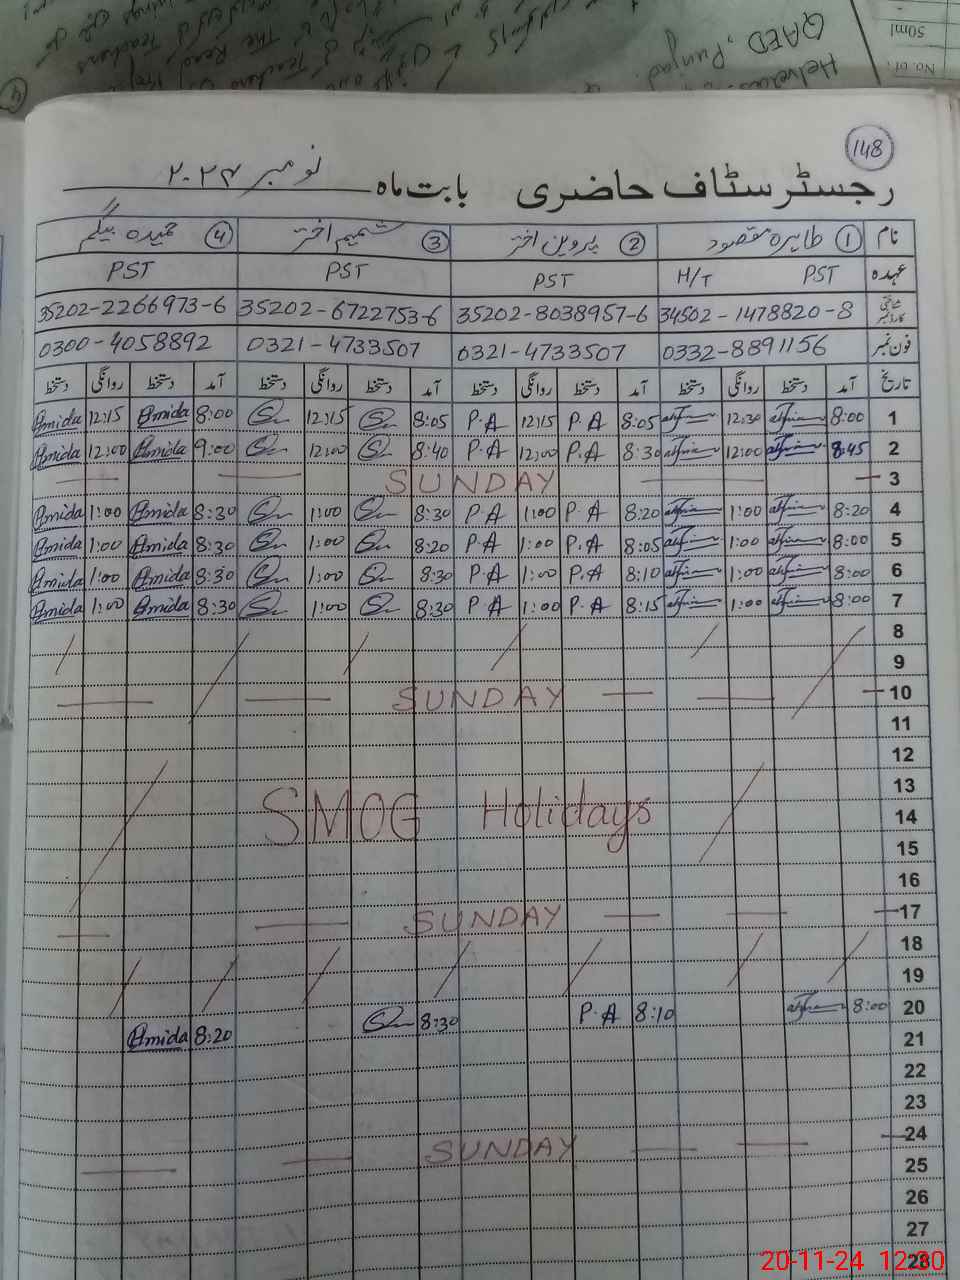 Helvetas
QAED, Punjab.
No. of
50ml
The Read
Teachers
148
رجسٹر سٹاف حاضری بابت ماہ نومبر ۲۰۲۴
نام ① طاہرہ مقصود ② پروین اختر ③ شمیم اختر ④ حمیدہ بیگم
عہدہ PST H/T PST PST PST
شناختی کارڈ نمبر 34502-1478820-8 35202-8038957-6 35202-6722753-6 35202-2266973-6
فون نمبر 0332-8891156 0321-4733507 0321-4733507 0300-4058892
تاریخ آمد دستخط روانگی دستخط آمد دستخط روانگی دستخط آمد دستخط روانگی دستخط آمد دستخط روانگی دستخط
1 8:00 12:30 8:05 P.A 12:15 P.A 8:05 12:15 8:00 Hmida 12:15 Hmida
2 8:45 12:00 8:30 P.A 12:00 P.A 8:40 12:00 9:00 Hmida 12:00 Hmida
3 SUNDAY
4 8:20 1:00 8:20 P.A 1:00 P.A 8:30 1:00 8:30 Hmida 1:00 Hmida
5 8:00 1:00 8:05 P.A 1:00 P.A 8:20 1:00 8:30 Hmida 1:00 Hmida
6 8:00 1:00 8:10 P.A 1:00 P.A 8:30 1:00 8:30 Hmida 1:00 Hmida
7 8:00 1:00 8:15 P.A 1:00 P.A 8:30 1:00 8:30 Hmida 1:00 Hmida
8
9
10 SUNDAY
11
12
13
14 SMOG Holidays
15
16
17 SUNDAY
18
19
20 8:00 8:10 P.A 8:30 8:20 Hmida
21
22
23
24 SUNDAY
25
26
27
28
20-11-24 12:30